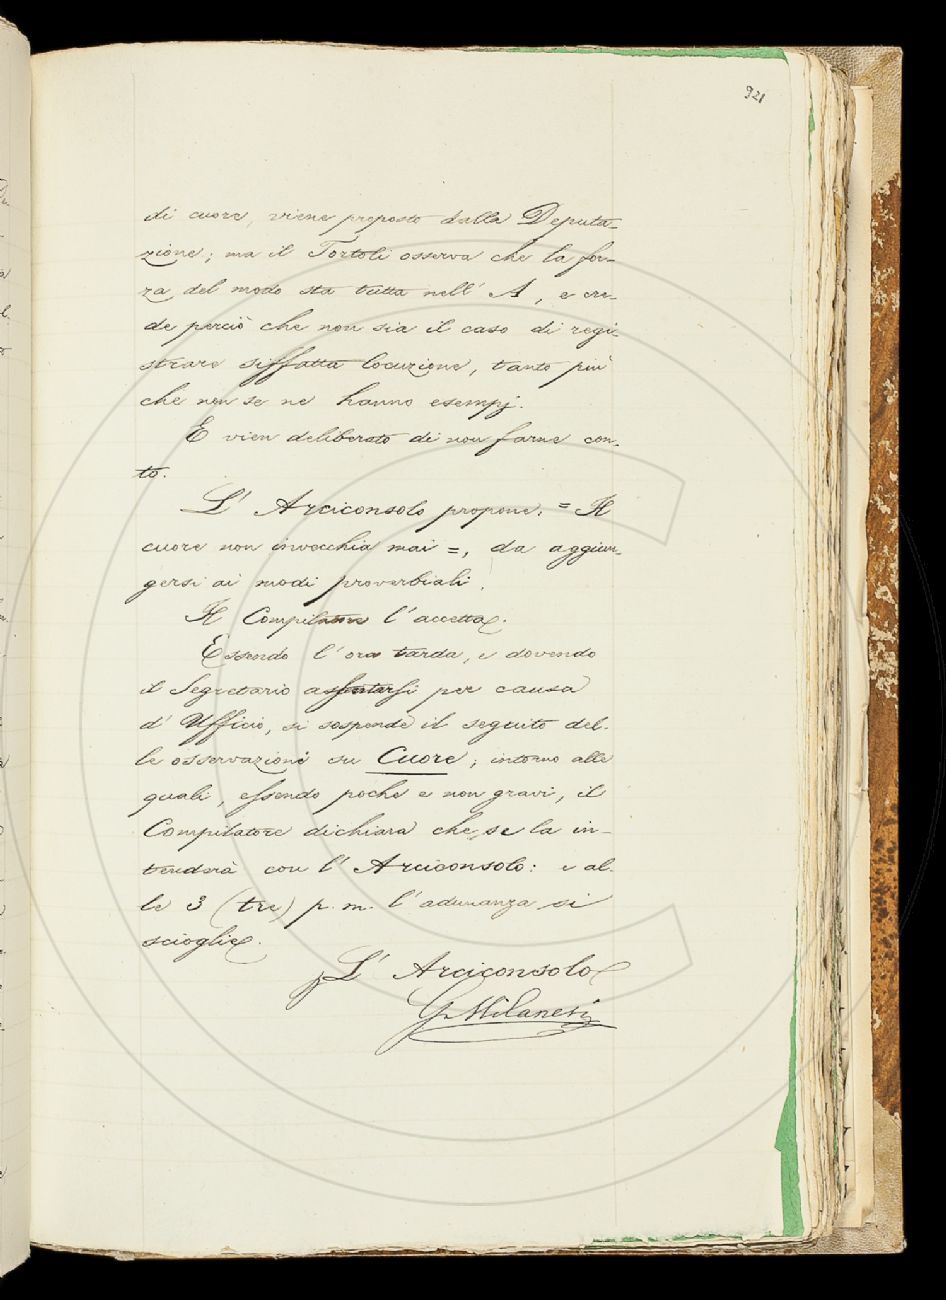 921
di cuore, viene proposto dalla Deputa-
zione; ma il Tortoli osserva che la for-
za del modo sta tutta nell' A, e cre-
de perciò che non sia il caso di regi-
strare siffatta locuzione, tanto più
che non se ne hanno esempj.
E vien deliberato di non farne con-
to.
L' Arciconsolo propone: = Il
cuore non invecchia mai =, da aggiun-
gersi ai modi proverbiali.
Il Compilatore l'accetta.
Essendo l'ora tarda, e dovendo
il Segretario assentarsi per causa
d' Ufficio, si sospende il seguito del-
le osservazioni su Cuore; intorno alle
quali, essendo poche e non gravi, il
Compilatore dichiara che se la in-
tenderà con l' Arciconsolo: e al-
le 3 (tre) p. m. l'adunanza si
scioglie.
L' Arciconsolo
G. Milanesi